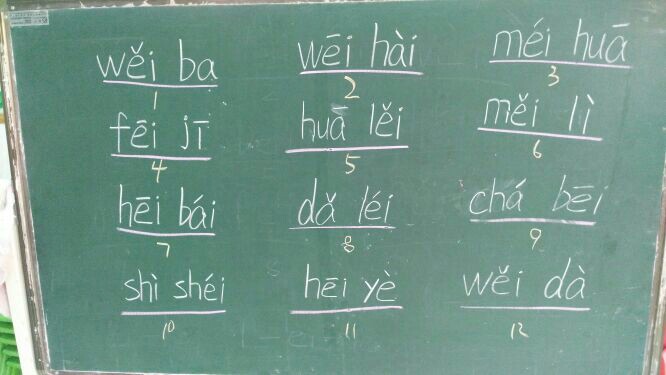 wěi ba wēi hài méi huā
1 2 3
fēi jī huā lěi měi lì
4 5 6
hēi bái dǎ léi chá bēi
7 8 9
shì shéi hēi yè wěi dà
10 11 12